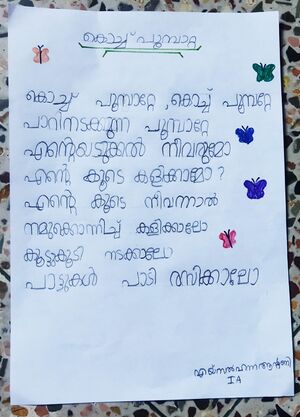 കൊച്ച് പൂമ്പാറ്റ
കൊച്ച് പൂമ്പാറ്റേ , കൊച്ച് പൂമ്പറ്റേ
പാറിനടക്കുന്ന പൂമ്പാറ്റേ
എന്റെഅടുക്കൽ നീവരുമോ
എന്റെ കൂടെ കളിക്കാമോ ?
എന്റെ കൂടെ നീവന്നാൽ
നമുക്കൊന്നിച്ച് കളിക്കാലോ
കൂട്ടുകൂടി നടക്കാലോ
പാട്ടുകൾ പാടി രസിക്കാലോ
I A